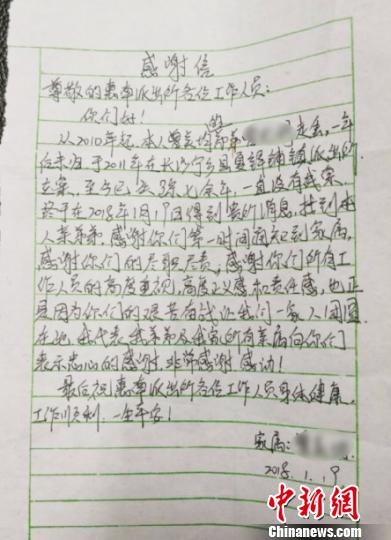 感谢信
尊敬的惠车派出所各位工作人员:
你们好!
的
从2010年起,本人曾 弟弟 走丢,一年
后未归,于2011年在长沙宁乡县 铺派出所
立案,至今已去 七余年,一直没有线索。
终于在2018年1月9日得到 消息,找到本
人亲弟弟,感谢你们第一时间 亲属,
感谢你们的尽职尽责,感谢你们所有工
作人员的高度重视,高度正义感和责任感,也正
是因为你们的 让我们一家人团圆
在此,我代表我弟弟及我家所有亲属向你们
表示忠心的感谢,非常感谢,感动!
最后祝惠车派出所各位工作人员身体健康,
工作顺利,一生平安!
家属:
2018.1.9
中新网
Chinanews.com